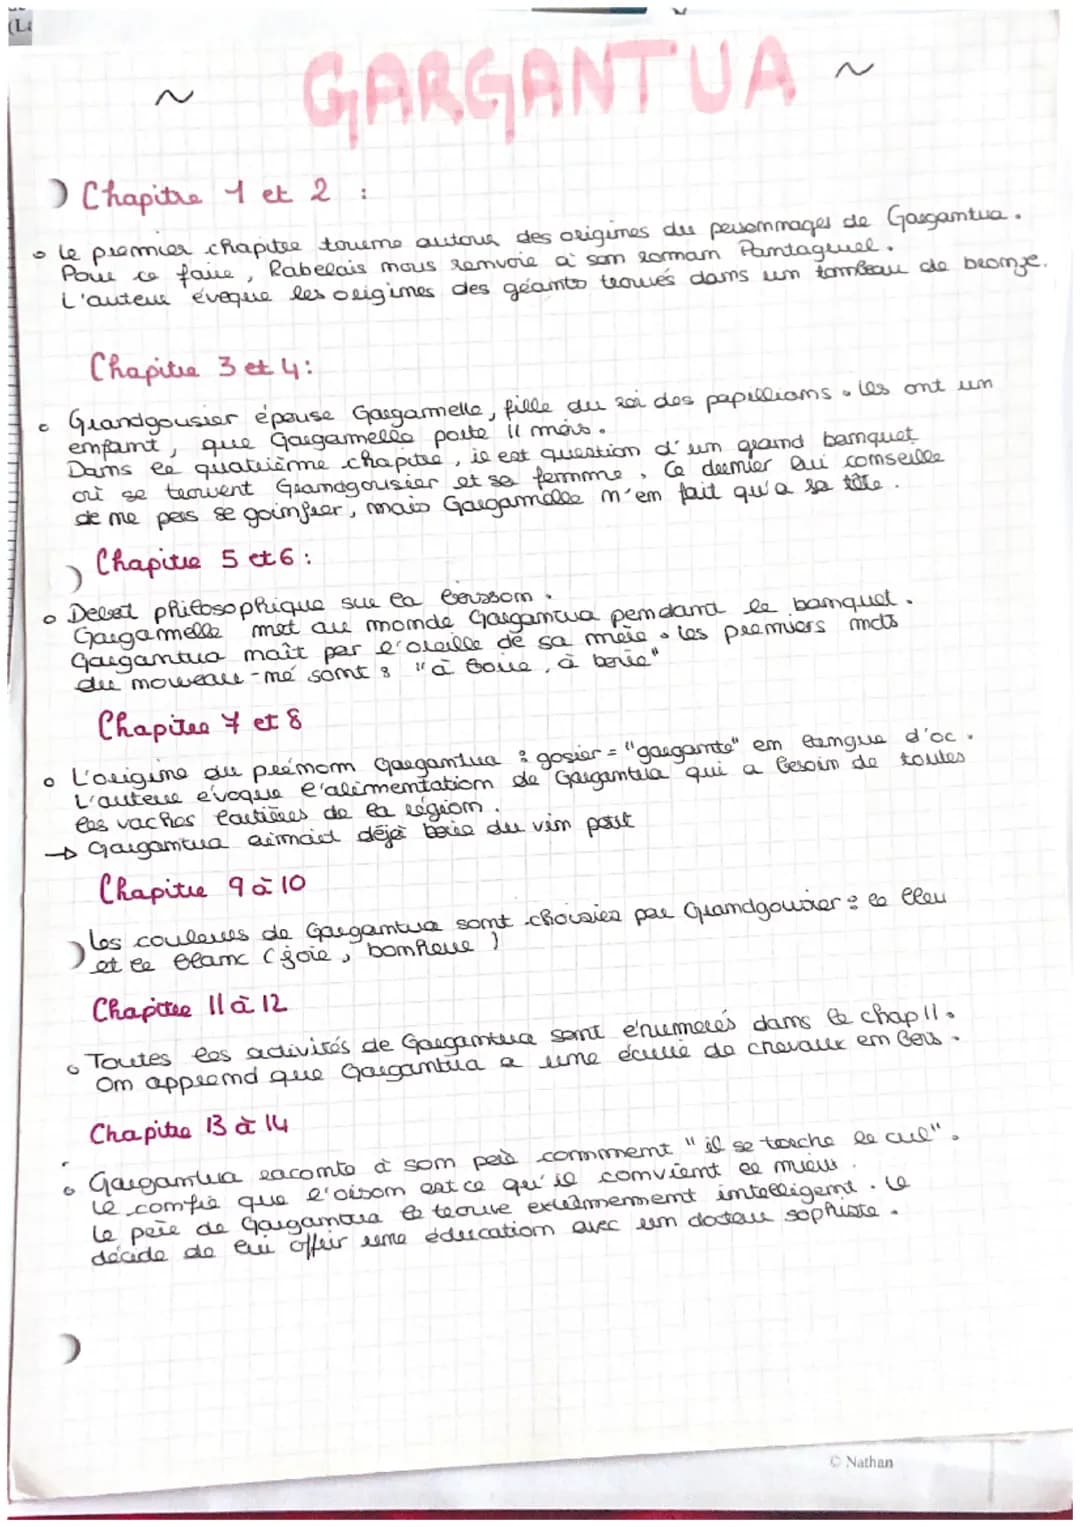 (La
~ GARGANTUA ~
Chapitre 1 et 2 :
Le premier chapitre tourne autour des origines du personnages de Gargantua.
Pour ce faire, Rabelais nous renvoie à son roman Pantagruel.
L'auteur évoque les origines des géants trouvés dans un tombeau de bronze.
Chapitre 3 et 4 :
Grandgousier épouse Gargamelle, fille du roi des papillions. Ils ont un
enfant, que Gargamelle porte 11 mois.
Dans le quatrième chapitre, il est question d'un grand banquet
où se trouvent Grandgousier et sa femme. Ce dernier lui conseille
de ne pas se goinfrer, mais Gargamelle n'en fait qu'à sa tête.
Chapitre 5 et 6 :
Debat philosophique sur la boisson.
Gargamelle met au monde Gargantua pendant le banquet.
Gargantua naît par l'oreille de sa mère. Les premiers mots
du nouveau-né sont : "à boire, à boire"
Chapitre 7 et 8
L'origine du prénom Gargantua : gosier = "gargante" en langue d'oc.
L'auteur évoque l'alimentation de Gargantua qui a besoin de toutes
les vaches laitières de la région.
→ Gargantua aimait déjà boire du vin petit
Chapitre 9 à 10
Les couleurs de Gargantua sont choisies par Grandgousier : le bleu
et le blanc (joie, bonheur)
Chapitre 11 à 12
Toutes les activités de Gargantua sont énumérés dans le chap 11.
On apprend que Gargantua a une écurie de chevaux en bois.
Chapitre 13 à 14
Gargantua raconte à son père comment "il se torche le cul".
Il confie que l'oison est ce qu'il convient le mieux.
Le père de Gargantua le trouve extrêmement intelligent. Il
décide de lui offrir une éducation avec un docteur sophiste.
© Nathan